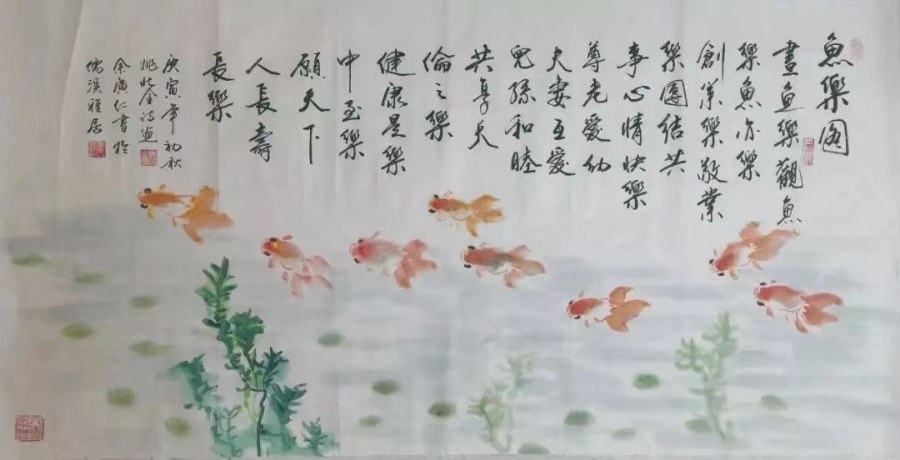 魚樂图
畫鱼樂觀魚
樂魚亦樂
創業樂敬業
樂團结共
事心情快樂
尊老爱幼
夫妻互爱
兒孫和睦
共享天
倫之樂
健康是樂
中至樂
願天下
人長壽
長樂
庚寅年初秋
姚北全诗画
余廣仁書於
儒溪雅居